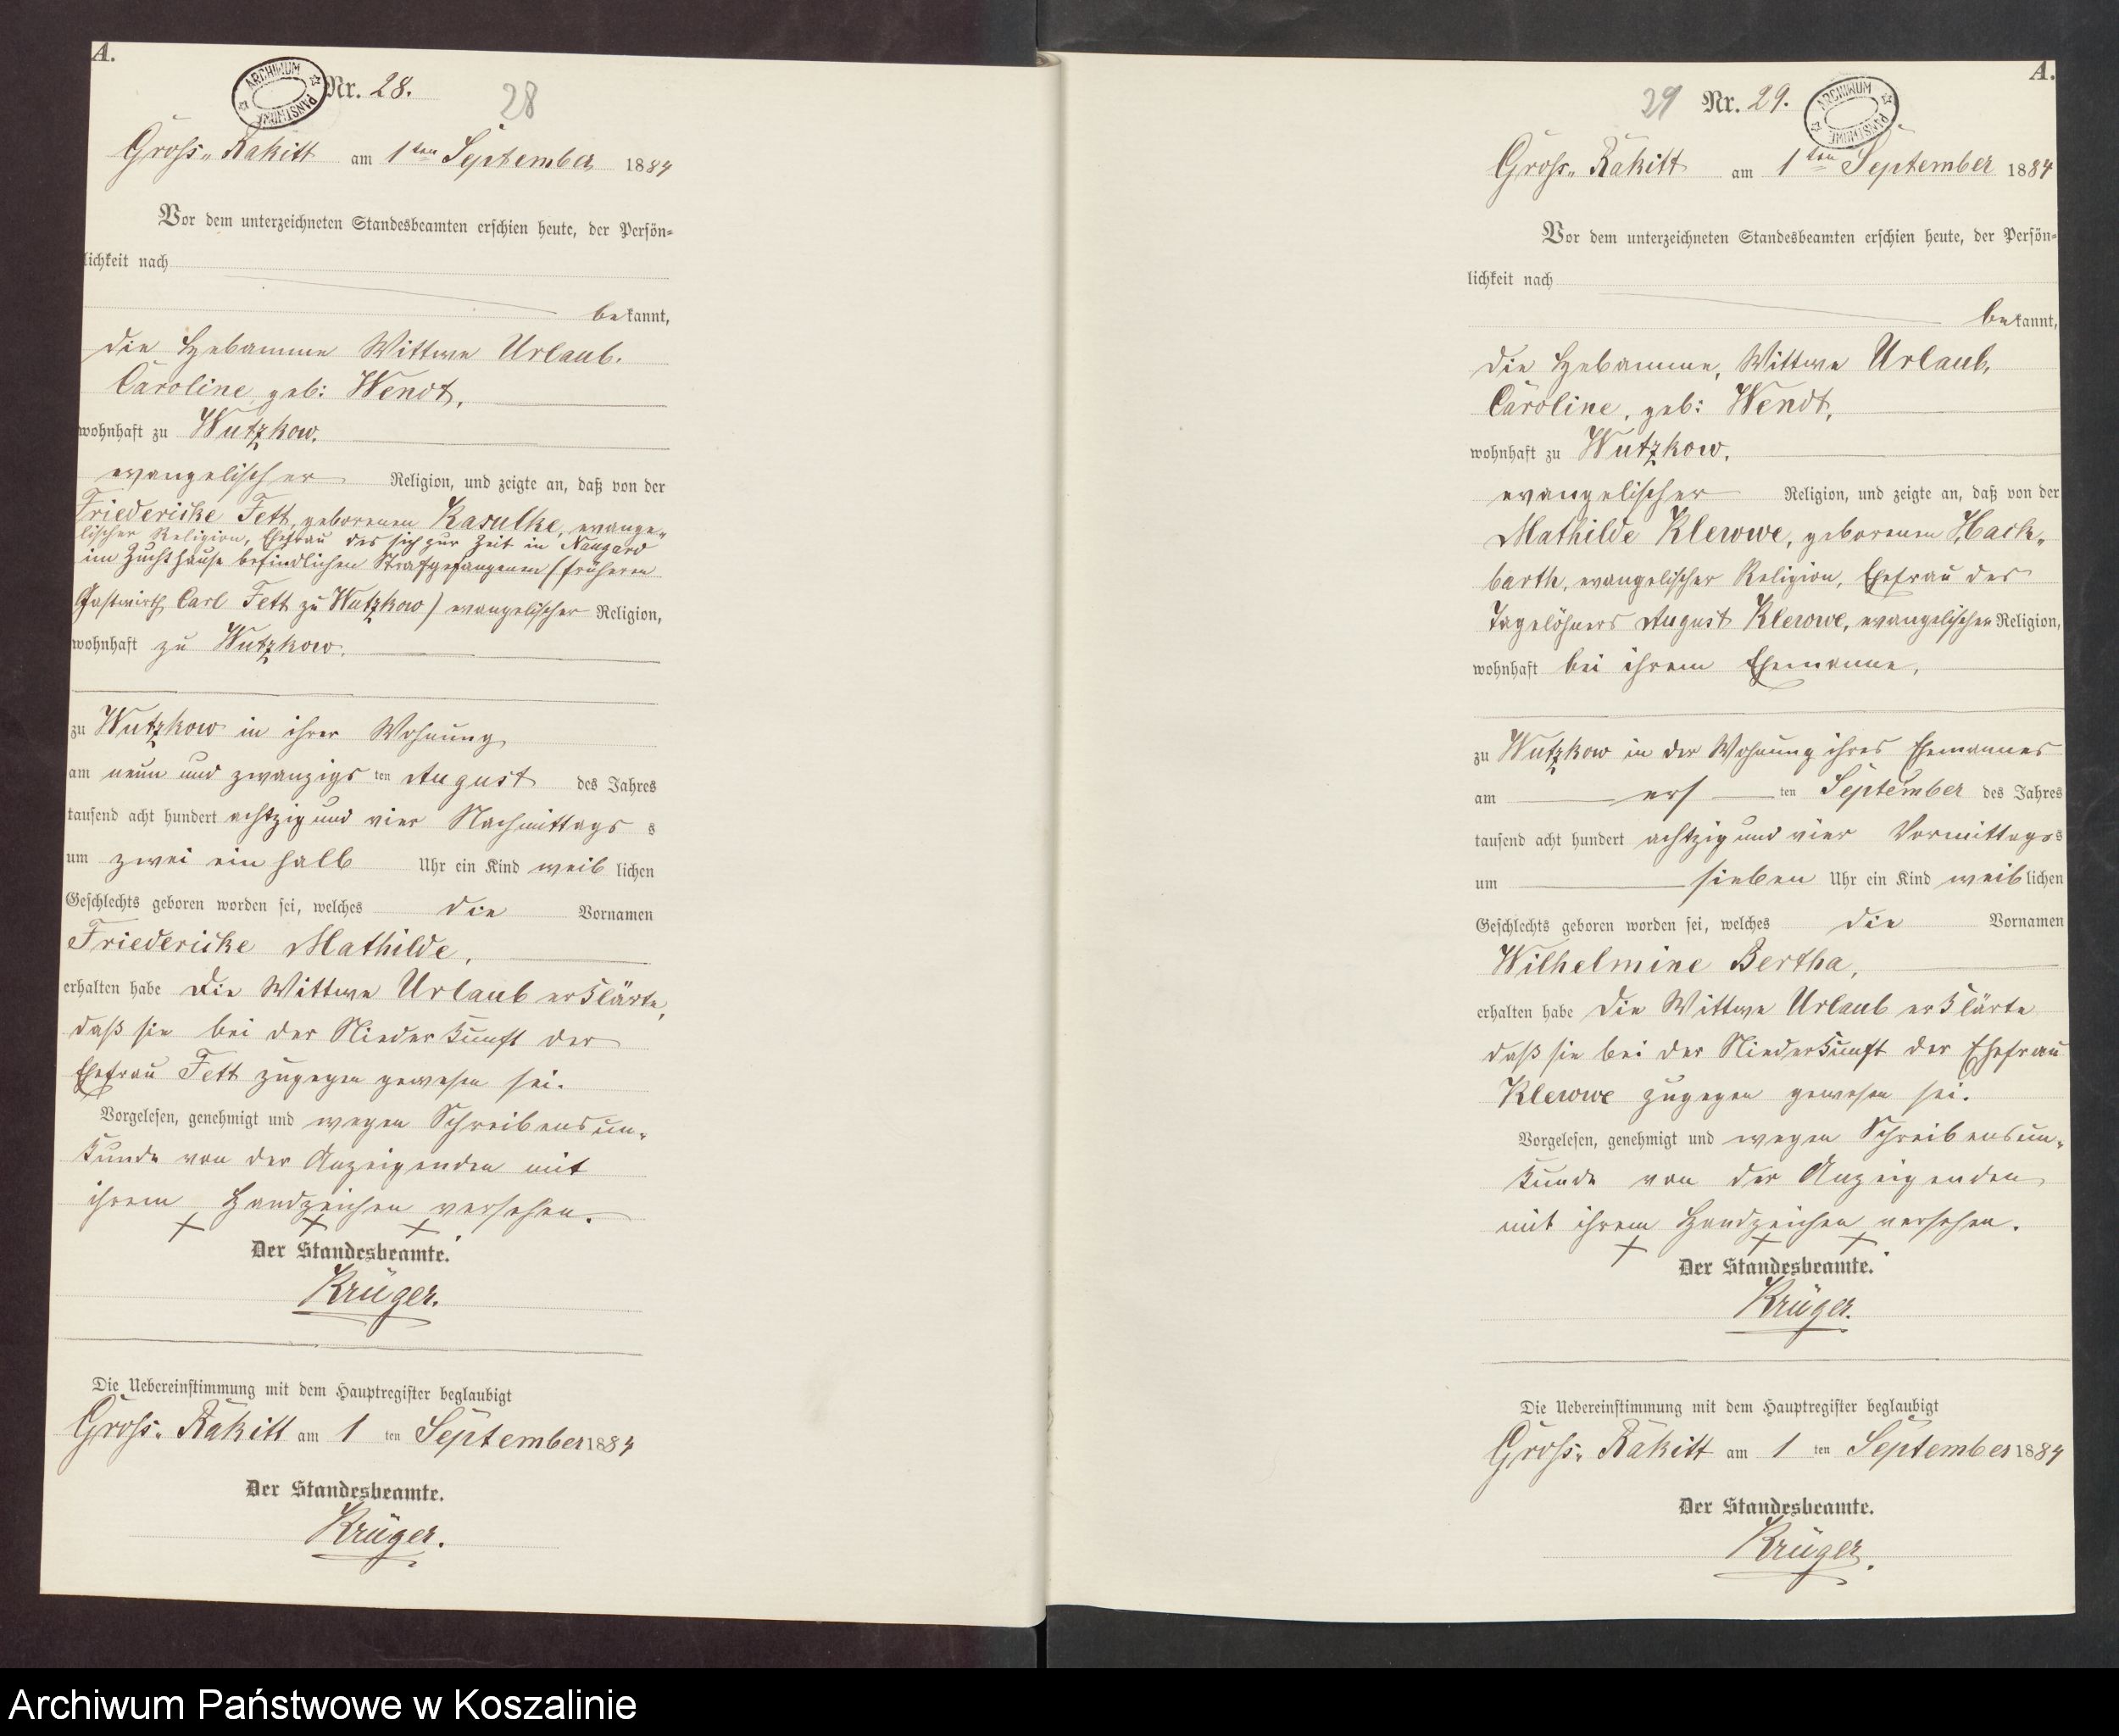 A.
ARCHIWUM PAŃSTWOWE
Nr. 28.
28
Gross-Rakitt am 1ten September 1884
Vor dem unterzeichneten Standesbeamten erschien heute, der Persön-
lichkeit nach
bekannt,
die Hebamme Wittwe Urlaub.
Caroline, geb: Wendt,
wohnhaft zu Wutzkow.
evangelischer Religion, und zeigte an, daß von der
Friedericke Fett, geborenen Kasulke, evange-
lischer Religion, Ehefrau des sich zur Zeit in Naugard
im Zuchthause befindlichen Strafgefangenen (früheren
Gastwirth Carl Fett zu Wutzkow) evangelischer Religion,
wohnhaft zu Wutzkow.
zu Wutzkow in ihrer Wohnung
am neun und zwanzigsten August des Jahres
tausend acht hundert achtzig und vier Nachmittags s
um zwei ein halb Uhr ein Kind weiblichen
Geschlechts geboren worden sei, welches die Vornamen
Friedericke Mathilde,
erhalten habe Die Wittwe Urlaub erklärte,
daß sie bei der Niederkunft der
Ehefrau Fett zugegen gewesen sei.
Vorgelesen, genehmigt und wegen Schreibensun-
kunde von der Anzeigenden mit
ihrem Handzeichen versehen.
+ + +
Der Standesbeamte.
Krüger.
Die Uebereinstimmung mit dem Hauptregister beglaubigt
Gross-Rakitt am 1 ten September 1884
Der Standesbeamte.
Krüger.
A.
29
Nr. 29.
ARCHIWUM PAŃSTWOWE
Gross-Rakitt am 1ten September 1884
Vor dem unterzeichneten Standesbeamten erschien heute, der Persön-
lichkeit nach
bekannt,
die Hebamme, Wittwe Urlaub,
Caroline, geb: Wendt,
wohnhaft zu Wutzkow.
evangelischer Religion, und zeigte an, daß von der
Mathilde Klewwe, geborenen Hack-
barth, evangelischer Religion, Ehefrau des
Tagelöhners August Klewwe, evangelischer Religion,
wohnhaft bei ihrem Ehemanne,
zu Wutzkow in der Wohnung ihres Ehemannes
am ersten September des Jahres
tausend acht hundert achtzig und vier Vormittags s
um sieben Uhr ein Kind weiblichen
Geschlechts geboren worden sei, welches die Vornamen
Wilhelmine Bertha,
erhalten habe Die Wittwe Urlaub erklärte
daß sie bei der Niederkunft der Ehefrau
Klewwe zugegen gewesen sei.
Vorgelesen, genehmigt und wegen Schreibensun-
kunde von der Anzeigenden
mit ihrem Handzeichen versehen.
+ + +
Der Standesbeamte.
Krüger.
Die Uebereinstimmung mit dem Hauptregister beglaubigt
Gross-Rakitt am 1 ten September 1884
Der Standesbeamte.
Krüger.
Archiwum Państwowe w Koszalinie